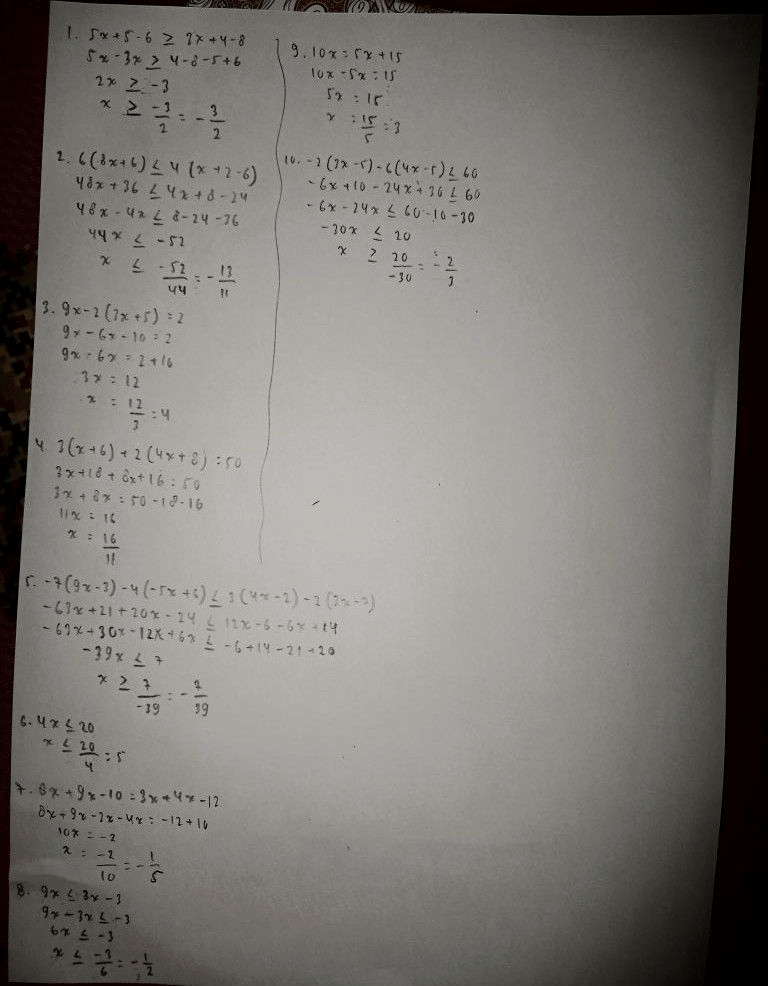 1. 5x+5-6 ≥ 3x+4-8
5x-3x ≥ 4-8-5+6
2x ≥ -3
x ≥ -3/2 = -3/2
2. 6(8x+6) ≤ 4(x+2-6)
48x+36 ≤ 4x+8-24
48x-4x ≤ 8-24-36
44x ≤ -52
x ≤ -52/44 = -13/11
3. 9x-2(3x+5)=2
9x-6x-10=2
9x-6x=2+10
3x=12
x=12/3=4
4. 3(x+6)+2(4x+8)=50
3x+18+8x+16=50
3x+8x=50-18-16
11x=16
x=16/11
5. -7(9x-3)-4(-5x+6) ≤ 3(4x-2)-2(3x-7)
-63x+21+20x-24 ≤ 12x-6-6x+14
-63x+30x-12x+6x ≤ -6+14-21+20
-39x ≤ 7
x ≥ 7/-39 = -7/39
6. 4x ≤ 20
x ≤ 20/4 = 5
7. 8x+9x-10=3x+4x-12
8x+9x-3x-4x=-12+10
10x=-2
x=-2/10=-1/5
8. 9x ≤ 3x-3
9x-3x ≤ -3
6x ≤ -3
x ≤ -3/6 = -1/2
9. 10x=5x+15
10x-5x=15
5x=15
x=15/5=3
10. -2(3x-5)-6(4x-5) ≤ 60
-6x+10-24x+30 ≤ 60
-6x-24x ≤ 60-10-30
-30x ≤ 20
x ≥ 20/-30 = -2/3